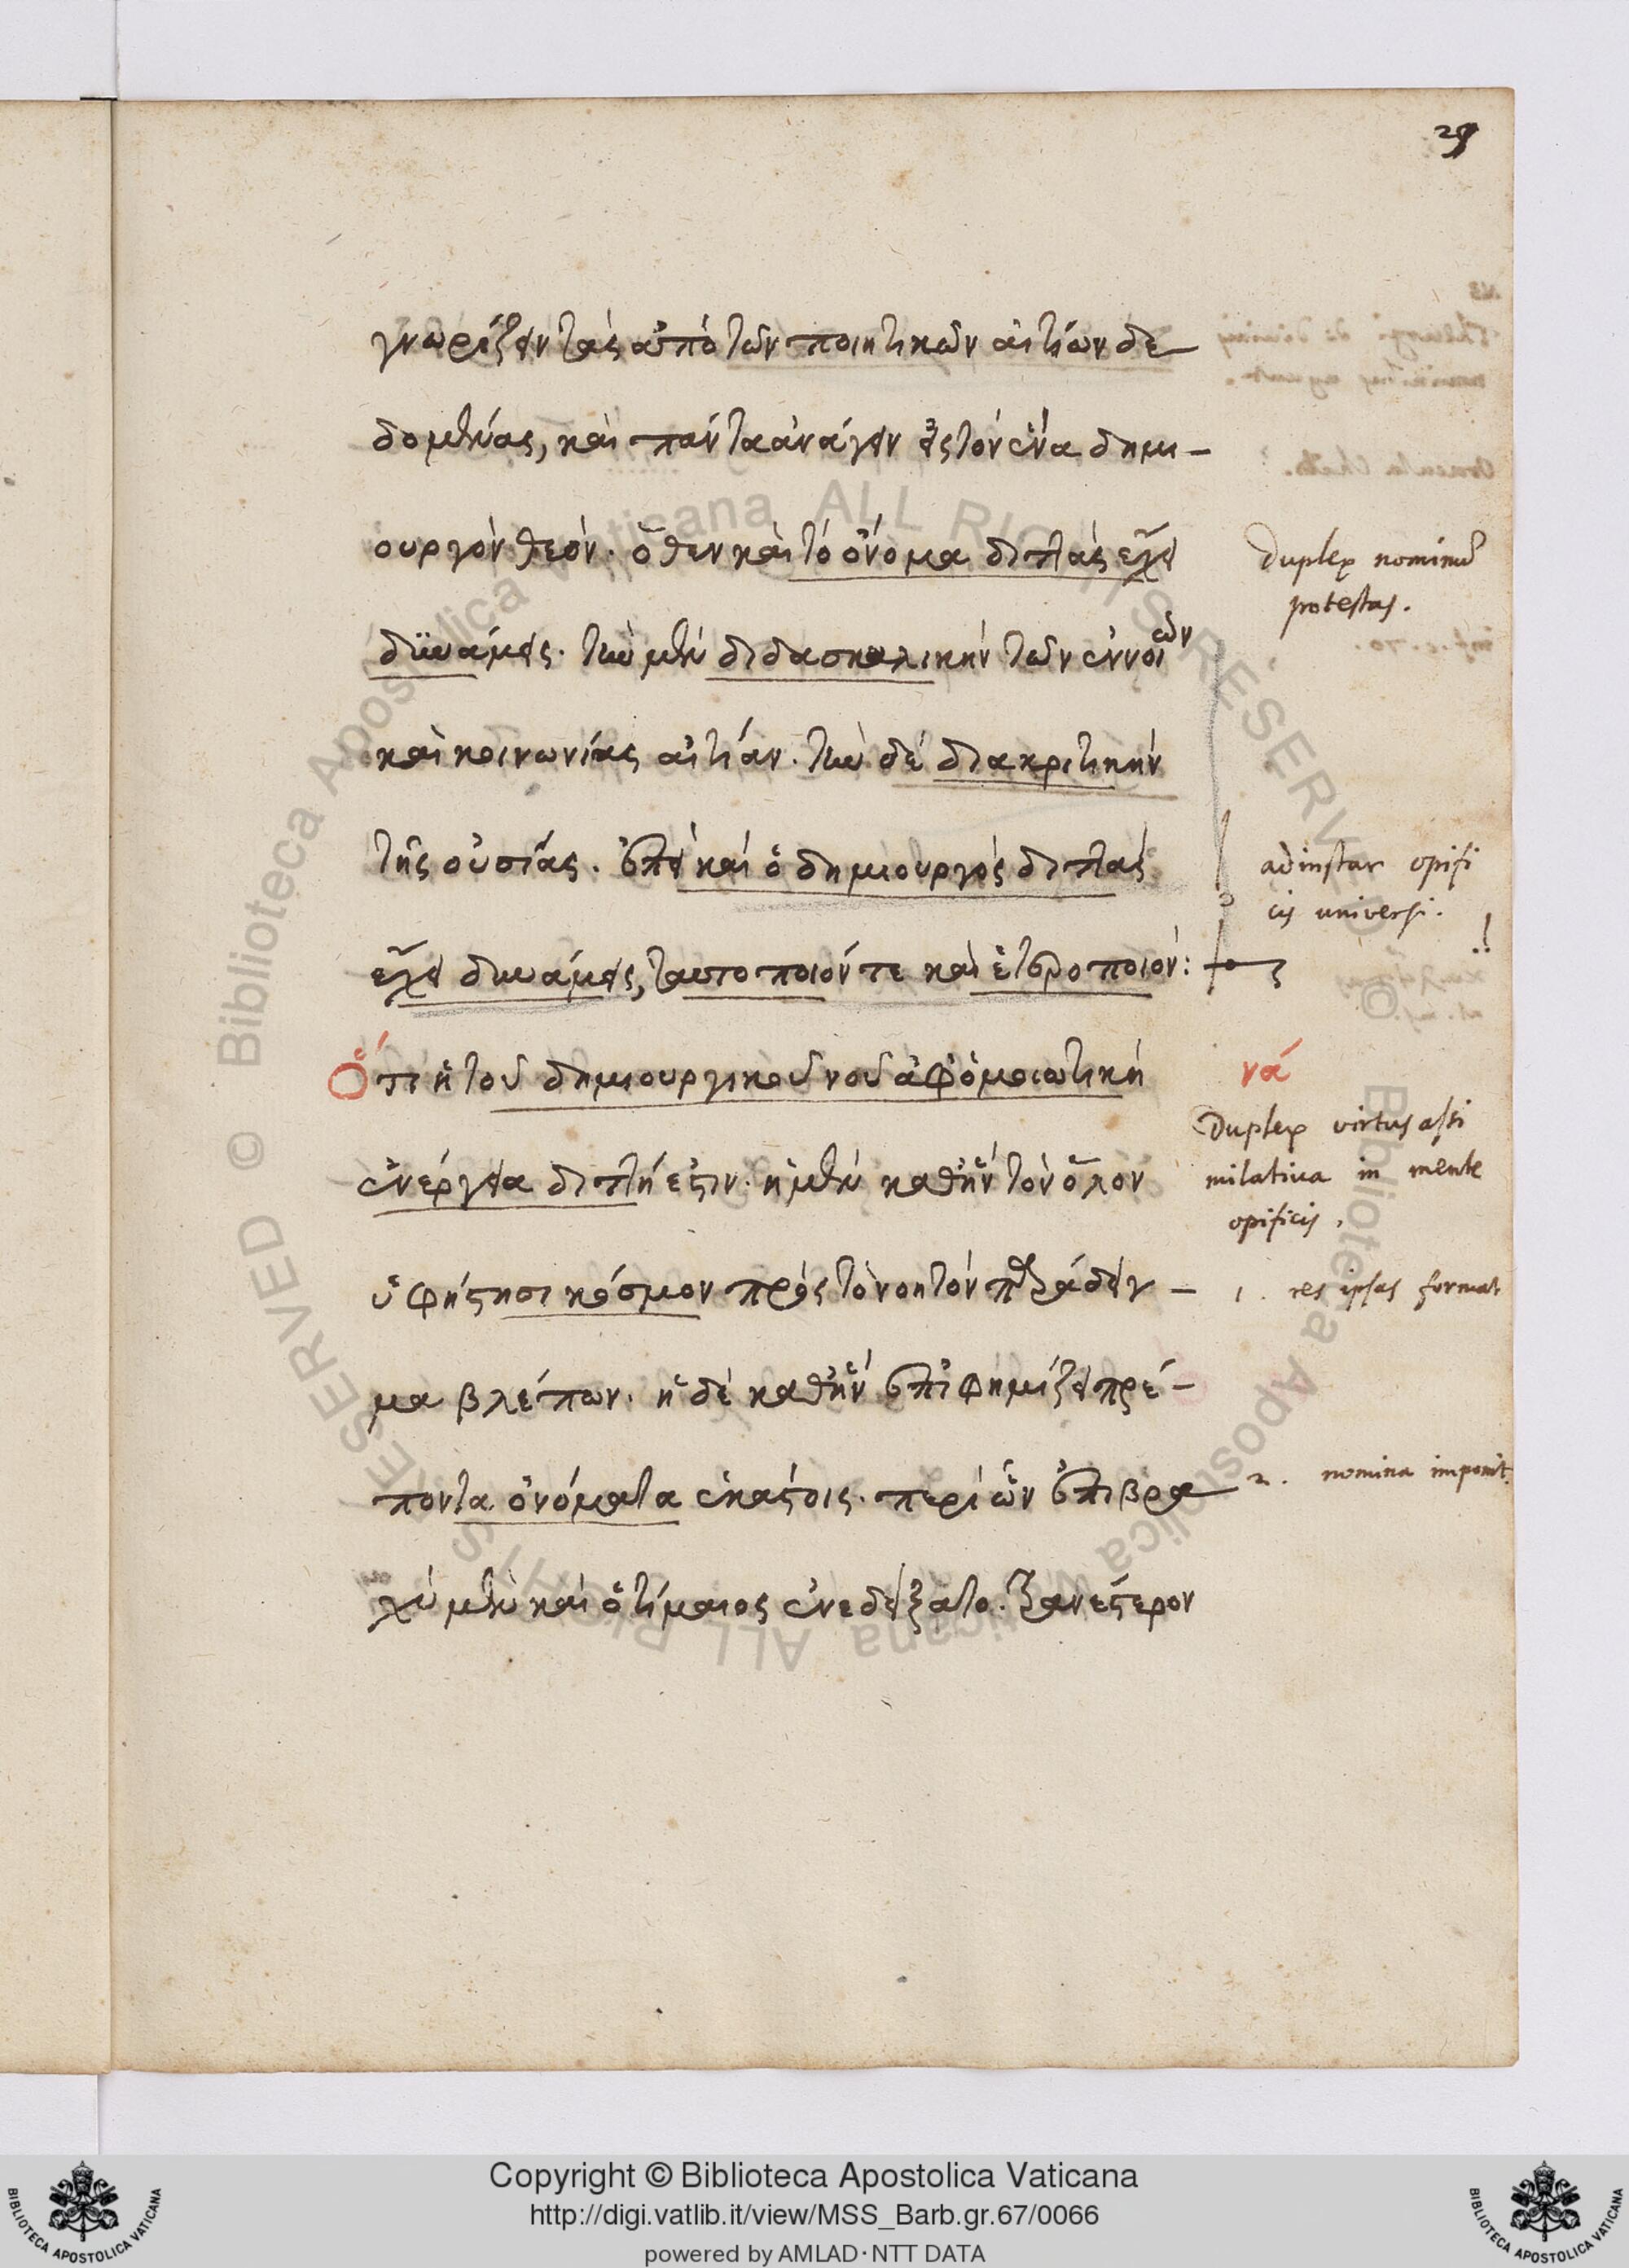 29
γνωρίζειν τὰς ἀπὸ τῶν ποιητικῶν αἰτιῶν δε
δομένας, καὶ πάντα ἀνάγειν εἰς τὸν ἕνα δημι-
ουργὸν θεόν. ὅθεν καὶ τὸ ὄνομα διπλὰς ἔχει
δϋνάμεις. τὴν μὲν διδασκαλικὴν τῶν ἐννοιῶν
καὶ κοινωνίας αἰτίαν. τὴν δὲ διακριτικὴν
τῆς οὐσίας. ἐπεὶ καὶ ὁ δημιουργὸς διπλὰς
ἔχει δυνάμεις, ταυτοποιόν τε καὶ ἑτεροποιόν:
Ὅτι ἡ τοῦ δημιουργικοῦ νοῦ ἀφομοιωτικὴ
ἐνέργεια διπλή ἐστιν. ἡ μὲν καθ' ἣν τὸν ὅλον
ὑφίστησι κόσμον πρὸς τὸ νοητὸν παράδειγ-
μα βλέπων. ἡ δὲ καθ' ἣν ἐπιφημίζει πρέ-
ποντα ὀνόματα ἑκάστοις. περὶ ὧν ἐπὶ βρα
χὺ μὲν καὶ ὁ τίμαιος ἐνεδείξατο.
duplex nominum
potestas.
ad instar opifi
cis universi.
νά
Duplex virtus assi
milativa in mente
opificis.
1. res ipsas format
2. nomina imponit.
Copyright © Biblioteca Apostolica Vaticana
http://digi.vatlib.it/view/MSS_Barb.gr.67/0066
powered by AMLAD·NTT DATA
BIBLIOTECA APOSTOLICA VATICANA
BIBLIOTECA APOSTOLICA VATICANA